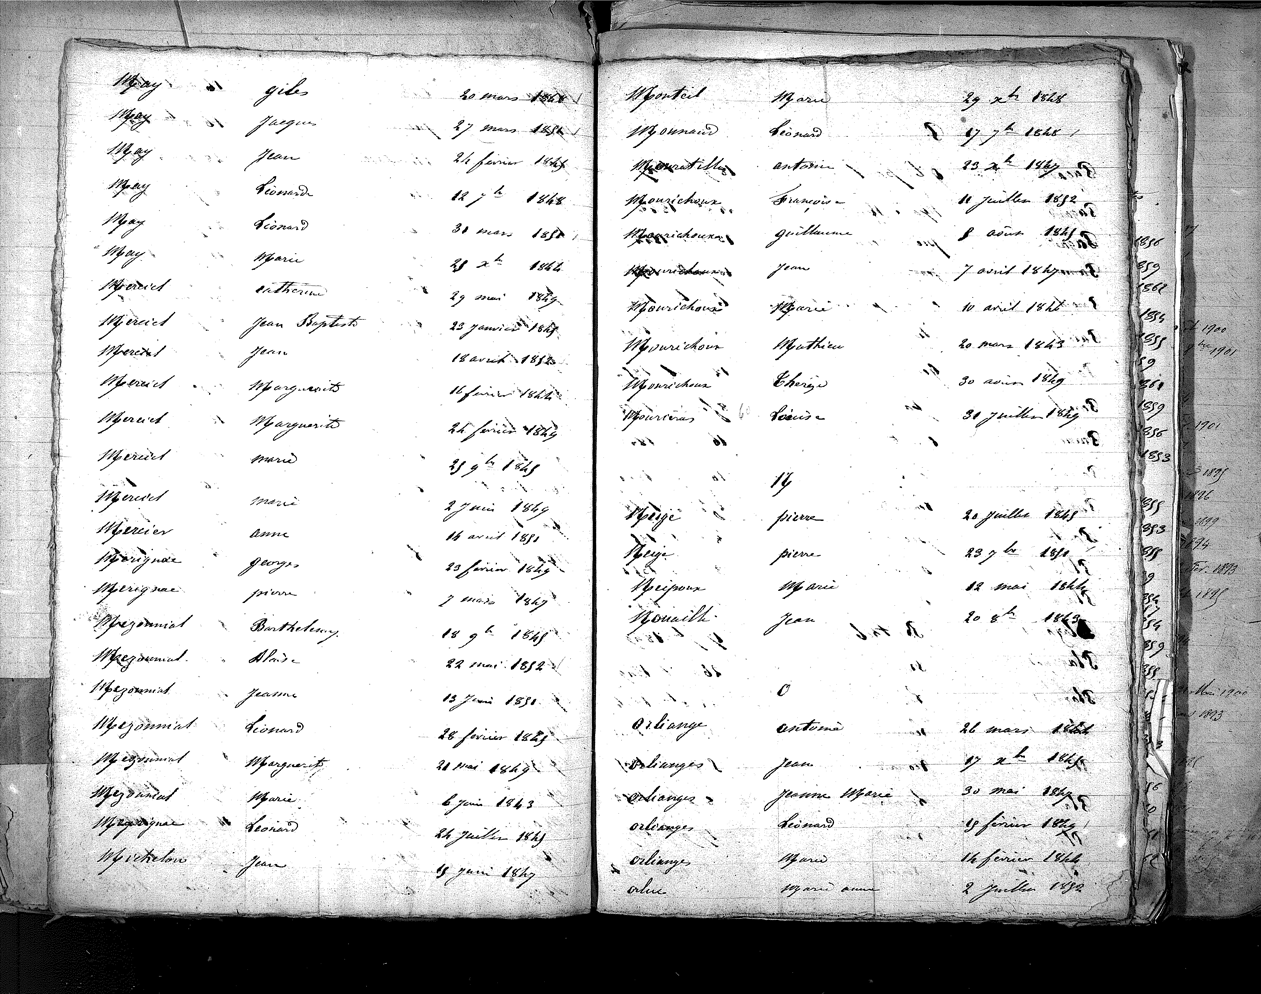 May giles 20 mars 1848
May Jacques 27 mars 1851
May Jean 24 fevrier 1845
May Léonarde 12 7bre 1848
May Léonard 30 mars 1850
May Marie 25 xbre 1844
Merciet catherine 29 mai 1849
Merciet Jean Baptiste 23 Janvier 1845
Merciet Jean 18 avril 1852
Merciet Marguerite 16 fevrier 1844
Merciet Marguerite 24 fevrier 1849
Merciet marie 25 9bre 1845
Merciet marie 2 Juin 1849
Mercier anne 14 avril 1850
Merignac georges 23 fevrier 1849
Merignac pierre 7 mars 1847
Mezonniat Barthelemy 18 9bre 1845
Mezonniat 22 mai 1852
Mezonniat Jeanne 13 Juin 1850
Mezonniat Léonard 28 fevrier 1845
Mezonniat Marguerite 21 mai 1849
Mezonniat Marie 6 Juin 1843
Léonard 24 Juillet 1845
Jean 15 Juin 1847
Monteil Marie 29 xbre 1848
Monnaud Léonard 17 7bre 1848
antoine 23 xbre 1847
Mourichoux Françoise 11 Juillet 1852
Mourichoux guillaume 8 août 1845
Mourichoux Jean 7 avril 1847
Mourichoux Marie 10 avril 1846
Mourichoux Mathieu 20 mars 1843
Mourichoux Therèse 30 août 1849
Mourieras Louise 30 Juillet 1849
N
Neige pierre 20 Juillet 1845
Neige pierre 23 7bre 1850
Marie 12 mai 1844
Nouaille Jean 20 8bre 1843
O
orliange antoine 26 mars 1844
orlianges Jean 17 xbre 1845
orlianges Jeanne Marie 30 mai 1849
orlianges Léonard 15 février 1849
orlianges Marie 14 février 1844
orlue Marie anne 2 Juillet 1852